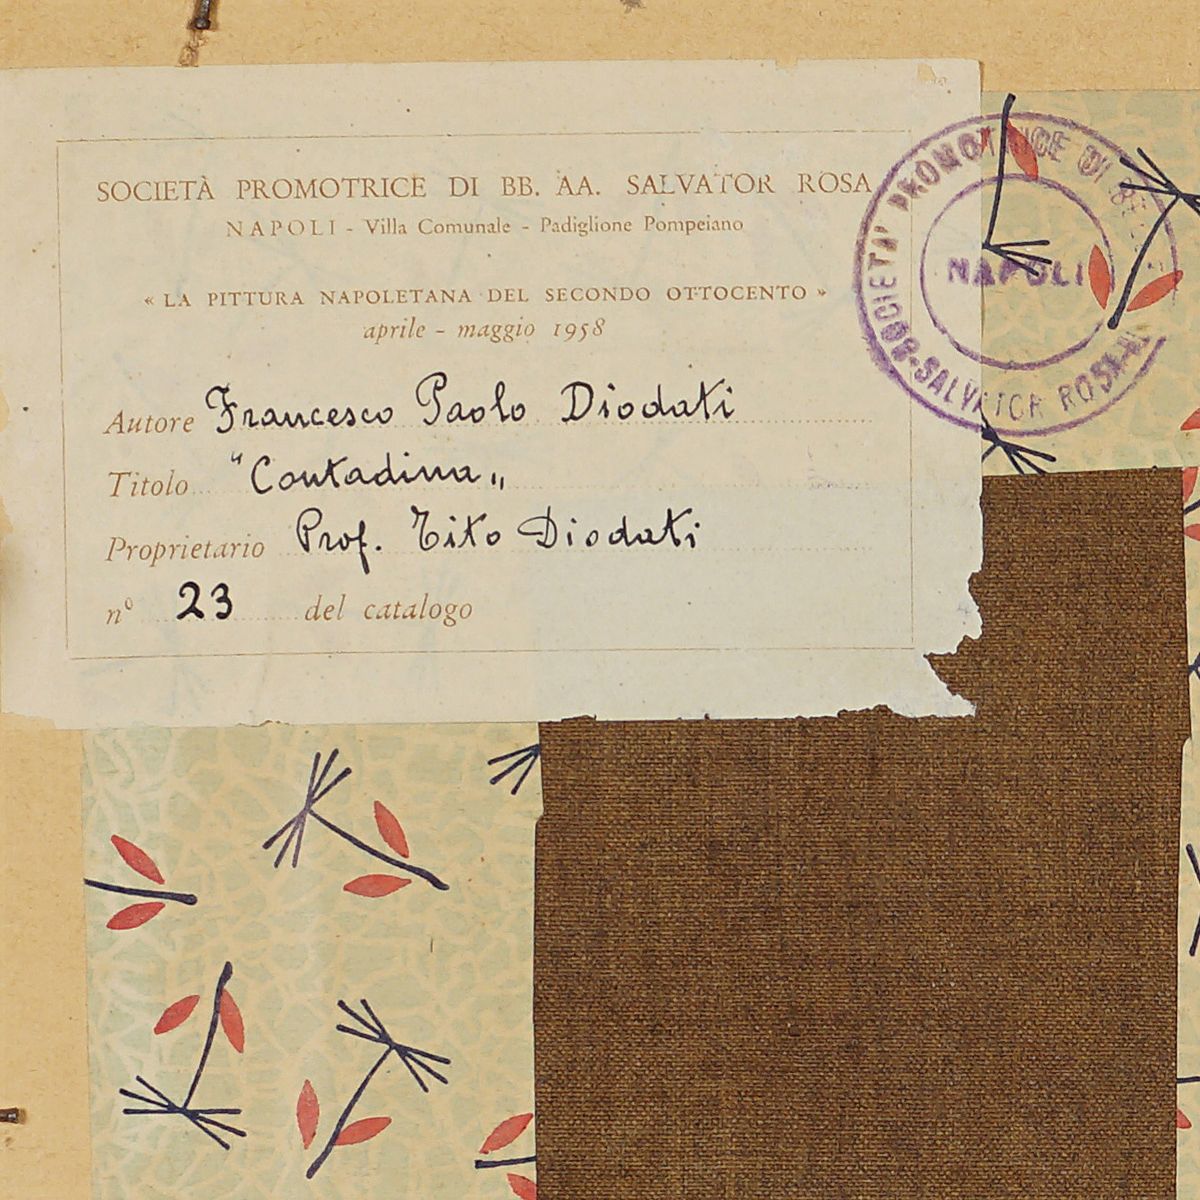 SOCIETÀ PROMOTRICE DI BB. AA. SALVATOR ROSA
NAPOLI - Villa Comunale - Padiglione Pompeiano
« LA PITTURA NAPOLETANA DEL SECONDO OTTOCENTO »
aprile - maggio 1958
Autore Francesco Paolo Diodati
Titolo "Contadina„
Proprietario Prof. Tito Diodati
nº 23 del catalogo
SOCIETA' PROMOTRICE DI
NAPOLI
SALVATOR ROSA